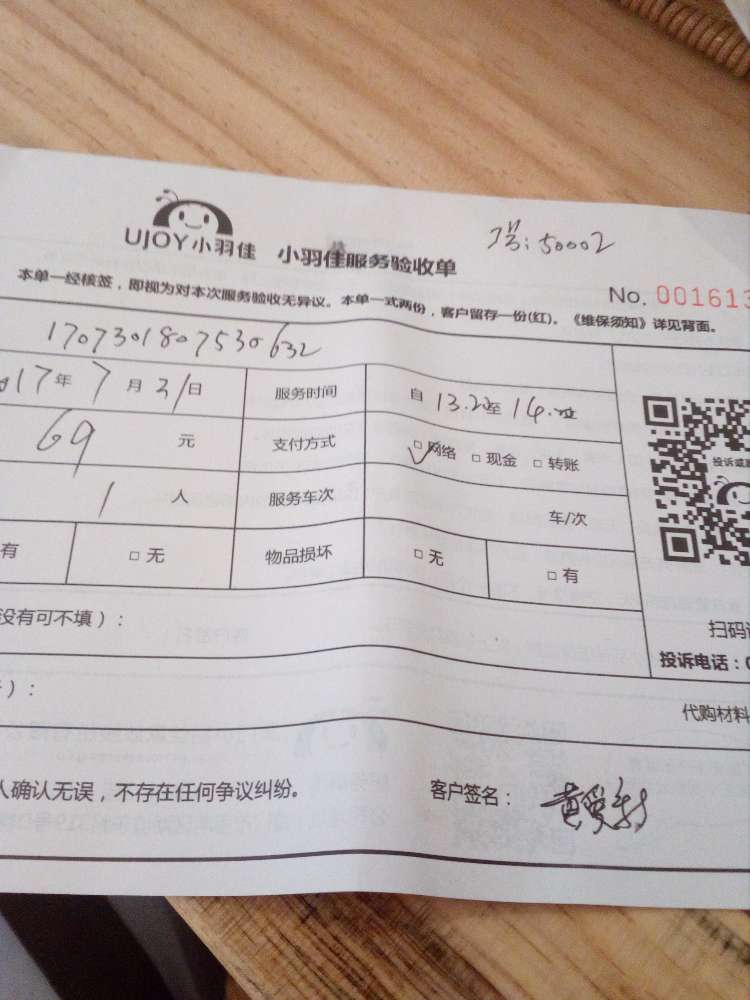 UJOY小羽佳 小羽佳服务验收单
No. 001613
本单一经核签，即视为对本次服务验收无异议。本单一式两份，客户留存一份(红)。《维保须知》详见背面。
1707301807530632
17年7月31日 服务时间 自13.22至14.
69元 支付方式 □网络 □现金 □转账
1人 服务车次 车/次
有 □无 物品损坏 □无 □有
没有可不填）：
扫码
投诉电话：0
）：
代购材料
人确认无误，不存在任何争议纠纷。 客户签名：